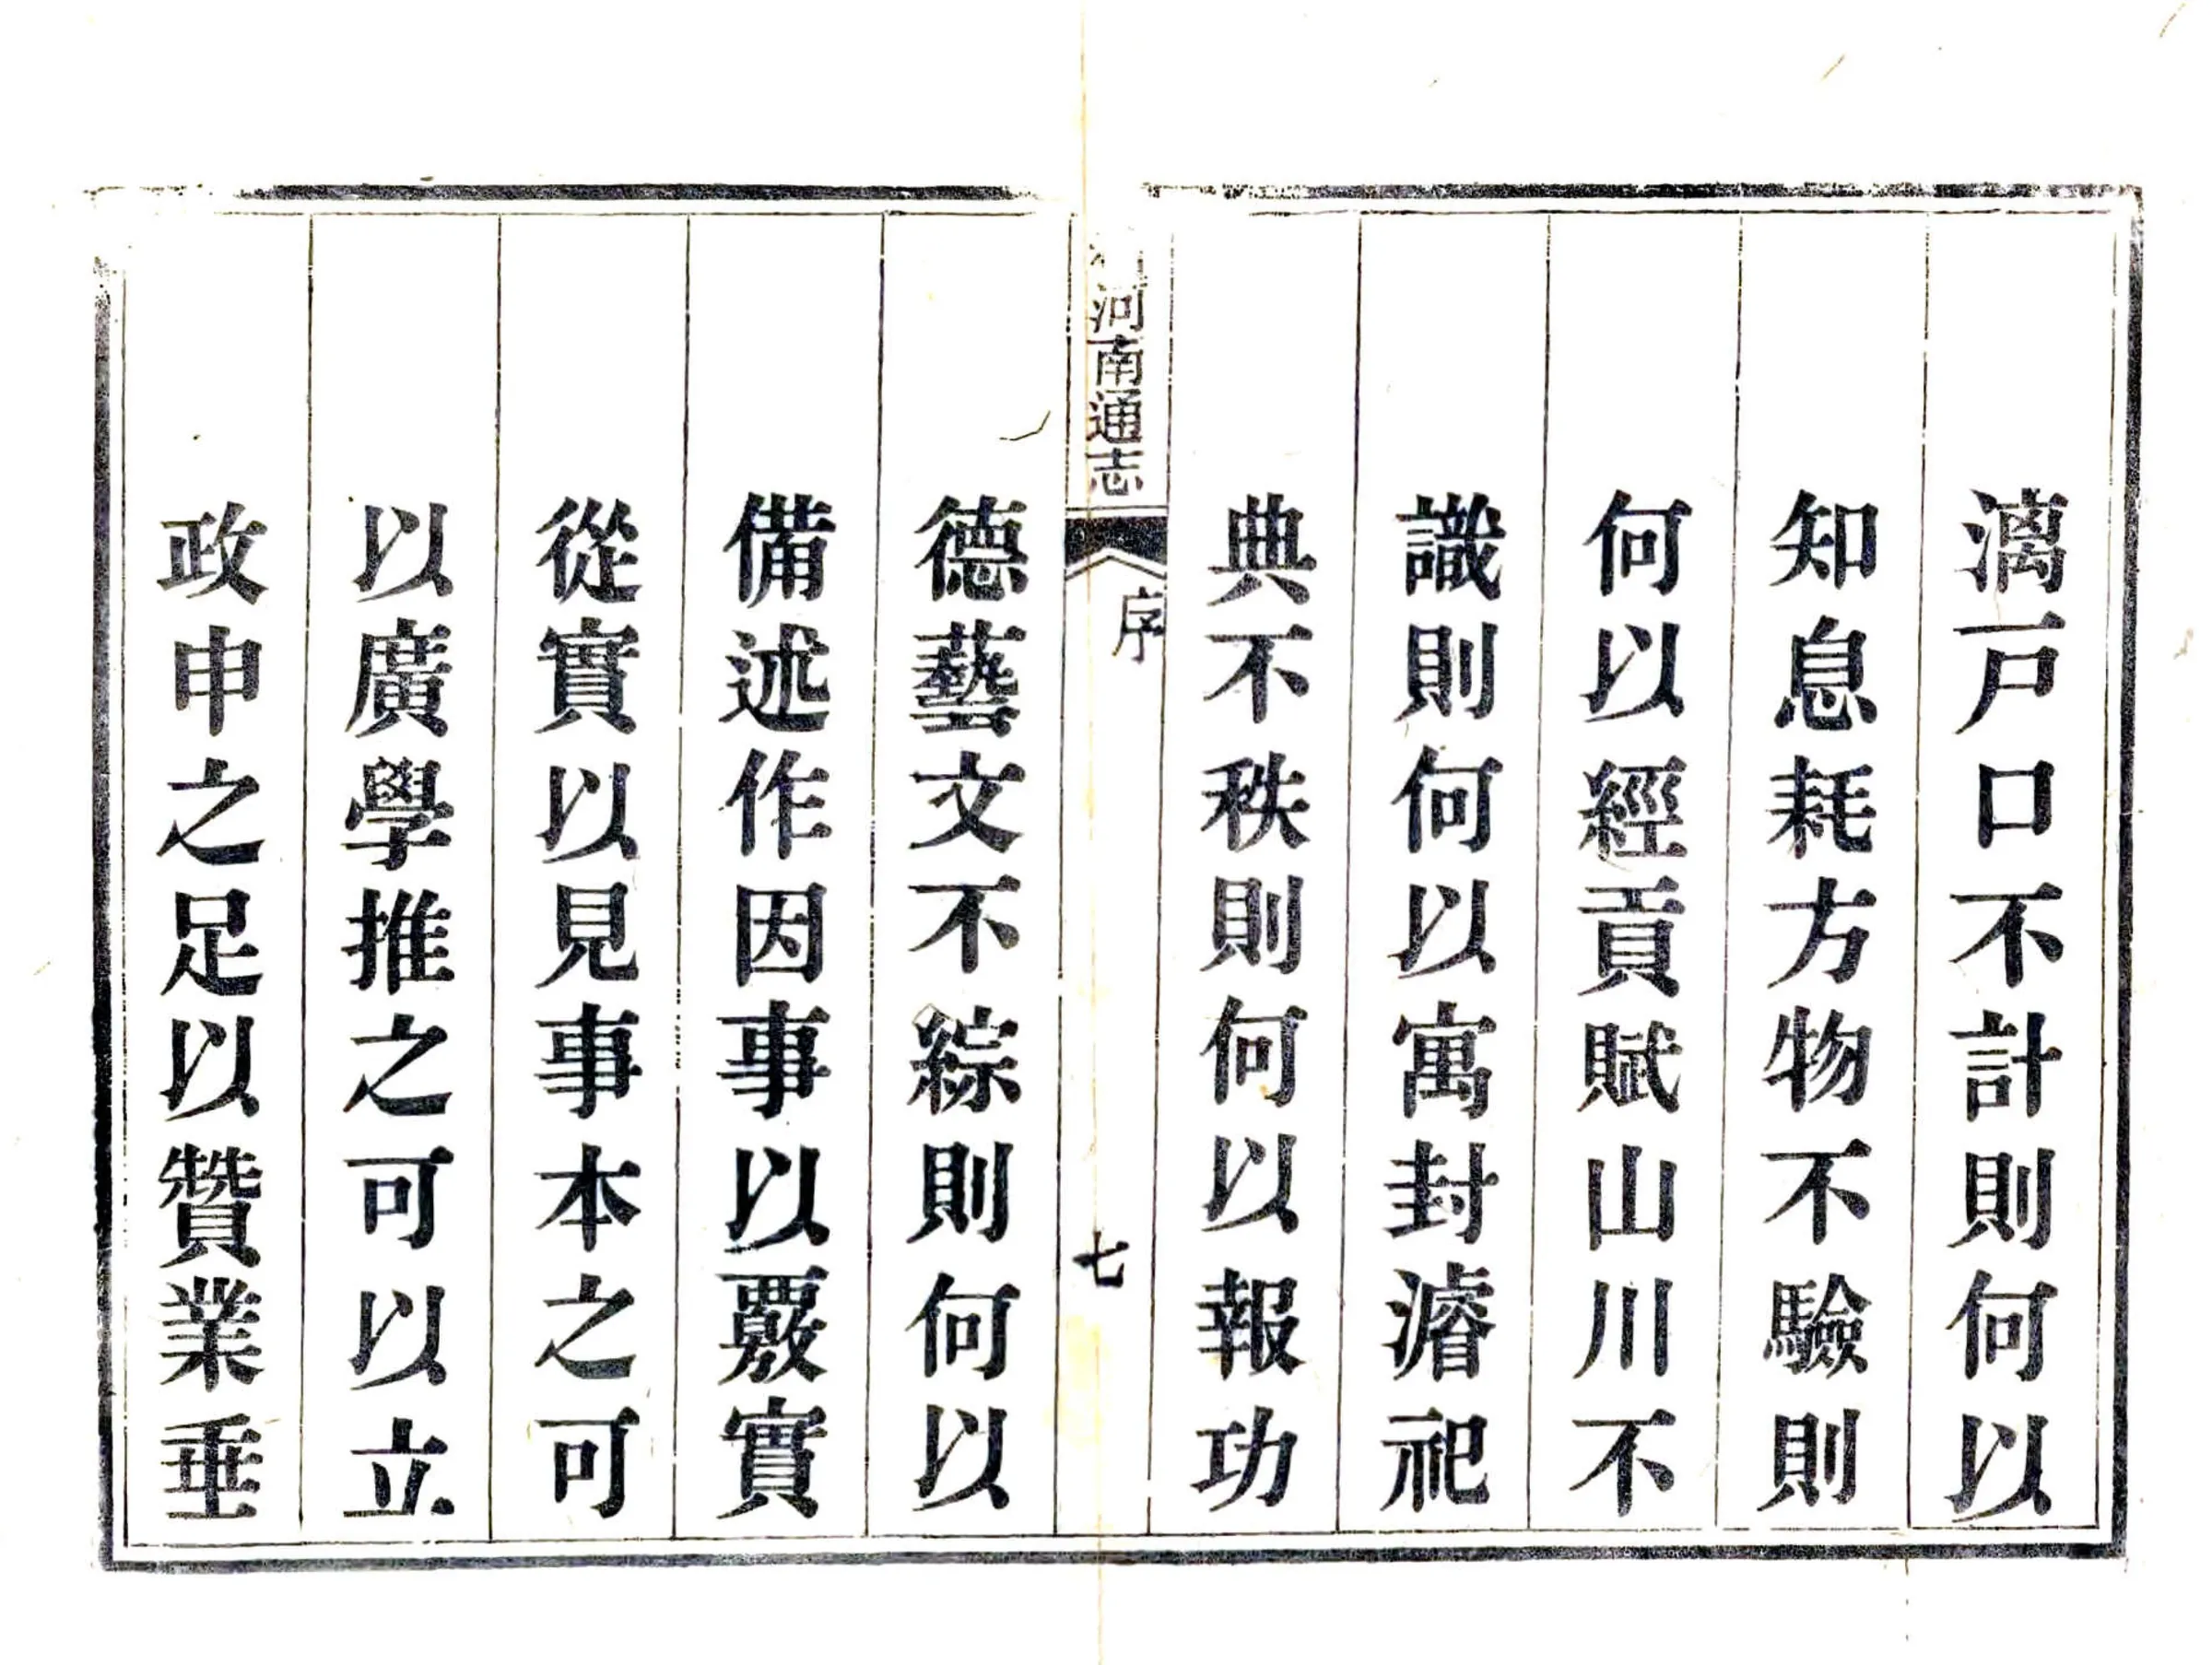 漓戸口不計則何以
知息耗方物不驗則
何以經貢賦山川不
識則何以寓封濬祀
典不秩則何以報功
河南通志
序
七
德藝文不綜則何以
備述作因事以覈實
從實以見事本之可
以廣學推之可以立
政申之足以贊業垂